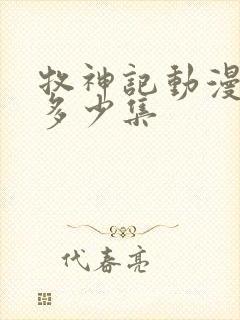 牧神記動漫
多少集
代春亮